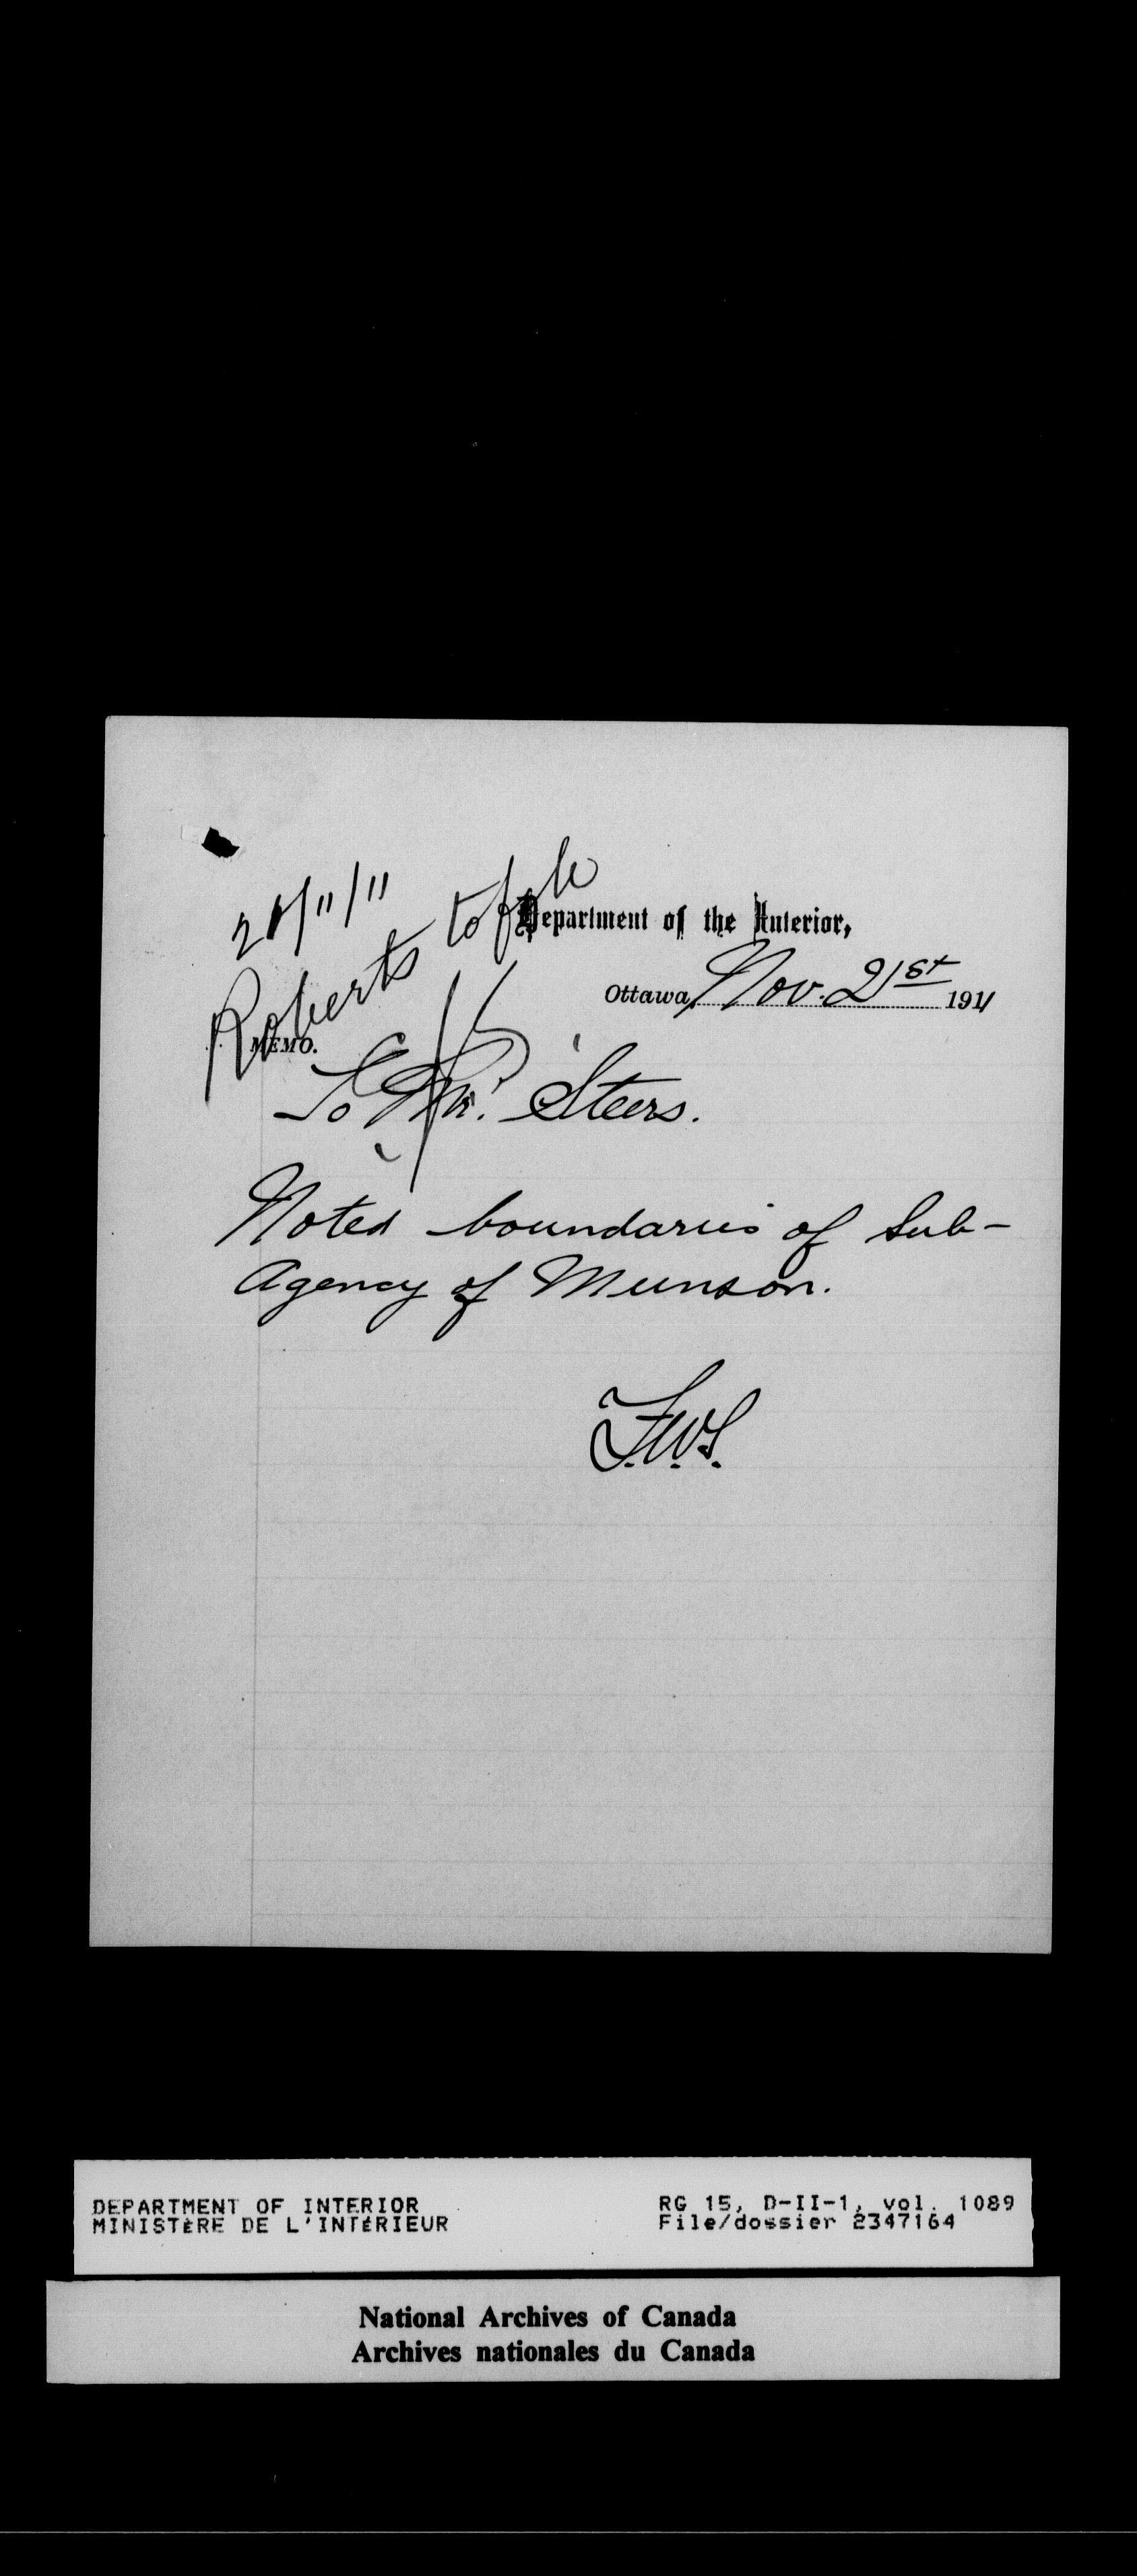 21/11/11
Roberts to file
Department of the Interior,
Ottawa, Nov. 21st 1911
MEMO.
To Mr. Steers.
Noted boundaries of Sub-
Agency of Munson.
F.W.S.
DEPARTMENT OF INTERIOR
MINISTÈRE DE L'INTÉRIEUR
RG 15, D-II-1, vol. 1089
File/dossier 2347164
National Archives of Canada
Archives nationales du Canada